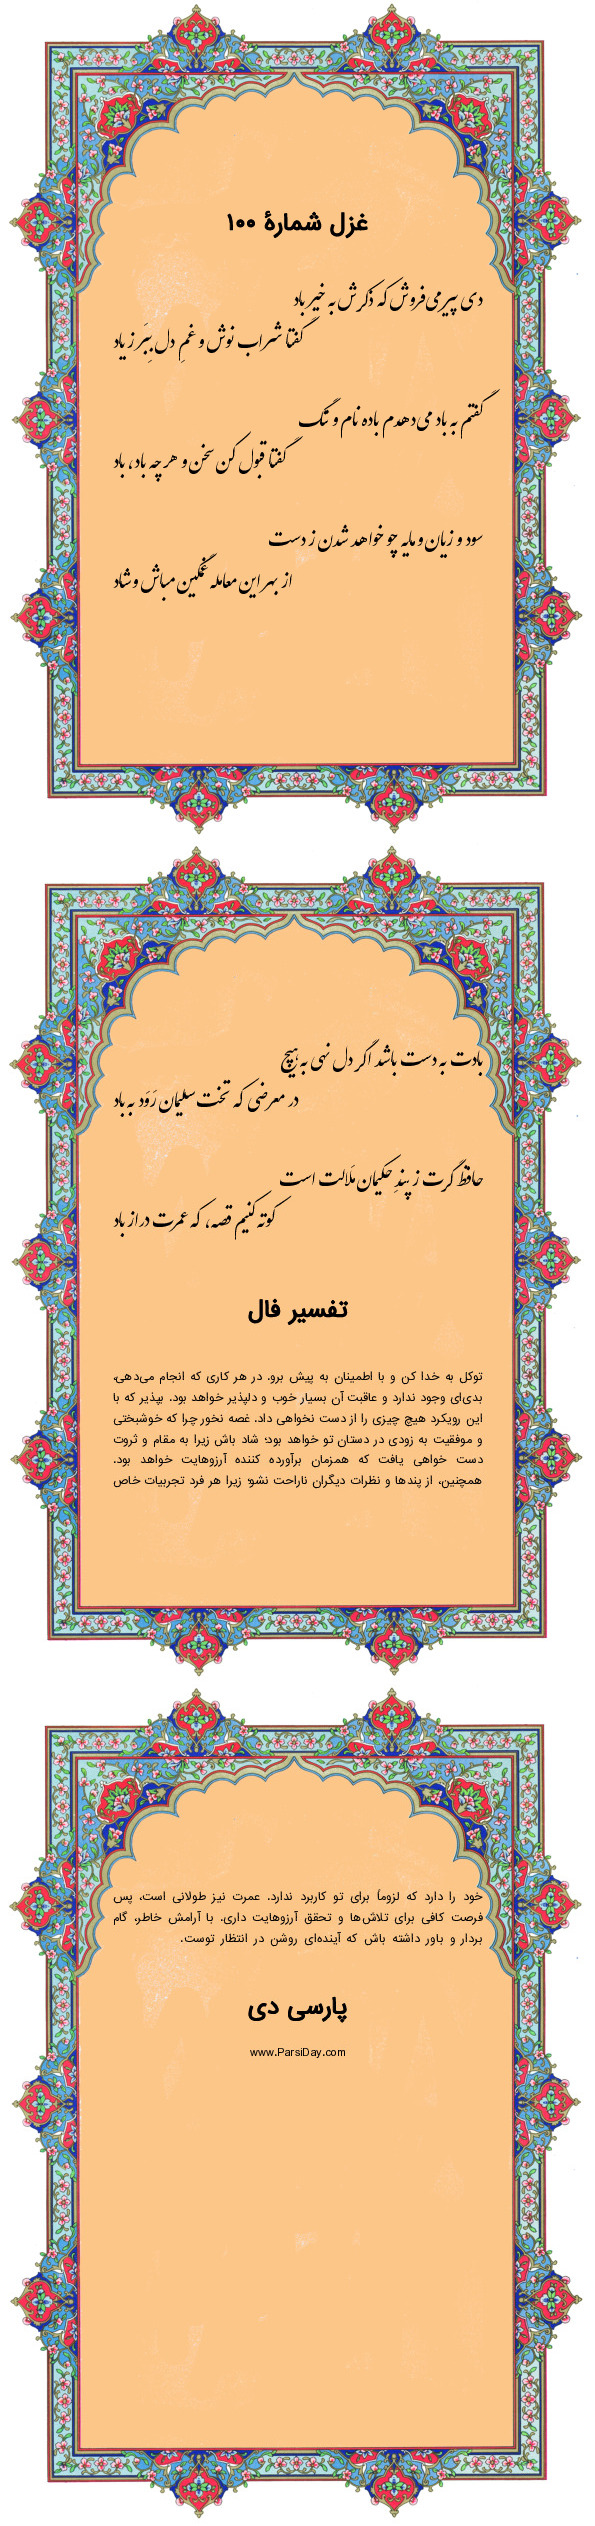 غزل شمارهٔ ۱۰۰
دی پیرِ می‌فروش که ذکرش به خیر باد
گفتا شراب نوش و غمِ دل بِبَر ز یاد
گفتم به باد می‌دهدم باده نام و ننگ
گفتا قبول کن سخن و هر چه باد، باد
سود و زیان و مایه چو خواهد شدن ز دست
از بهرِ این معامله غمگین مباش و شاد
بادت به دست باشد اگر دل نهی به هیچ
در معرضی که تختِ سلیمان رَوَد به باد
حافظ گرت ز پندِ حکیمان مَلالت است
کوته کنیم قصه، که عمرت دراز باد
تفسیر فال
توکل به خدا کن و با اطمینان به پیش برو. در هر کاری که انجام می‌دهی،
بدی‌ای وجود ندارد و عاقبت آن بسیار خوب و دلپذیر خواهد بود. بپذیر که با
این رویکرد هیچ چیزی را از دست نخواهی داد. غصه نخور چرا که خوشبختی
و موفقیت به زودی در دستان تو خواهد بود؛ شاد باش زیرا به مقام و ثروت
دست خواهی یافت که همزمان برآورده کننده آرزوهایت خواهد بود.
همچنین، از پندها و نظرات دیگران ناراحت نشو؛ زیرا هر فرد تجربیات خاص
خود را دارد که لزوماً برای تو کاربرد ندارد. عمرت نیز طولانی است، پس
فرصت کافی برای تلاش‌ها و تحقق آرزوهایت داری. با آرامش خاطر، گام
بردار و باور داشته باش که آینده‌ای روشن در انتظار توست.
پارسی دی
www.ParsiDay.com